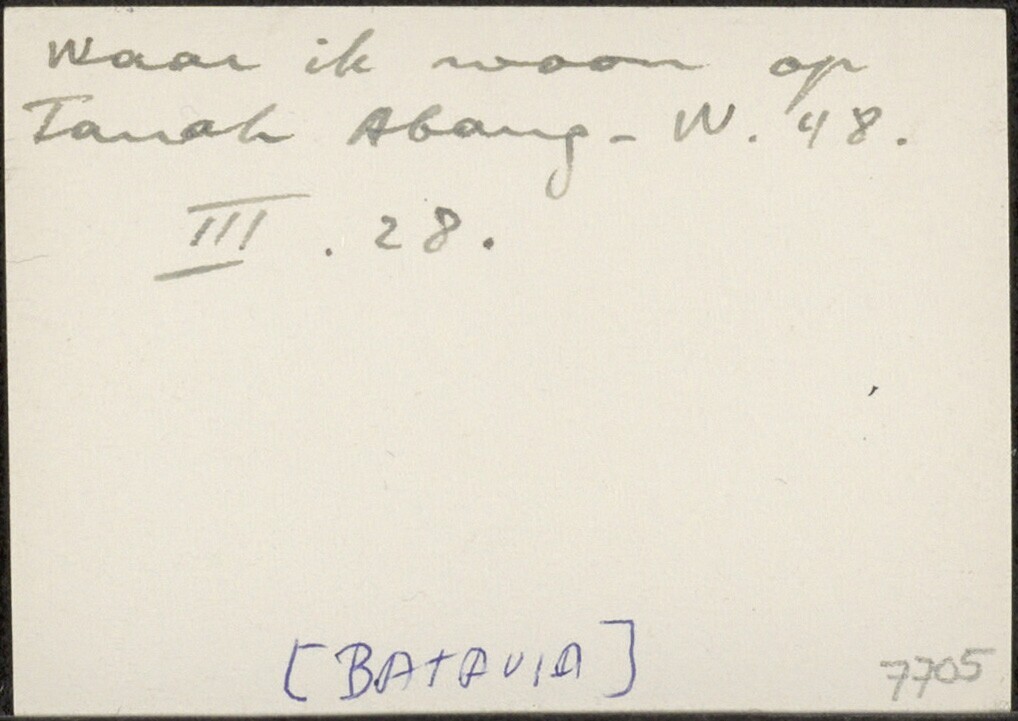 Waar ik woon op
Tanah Abang - W. 48.
III . 28.
[BATAVIA]
7705